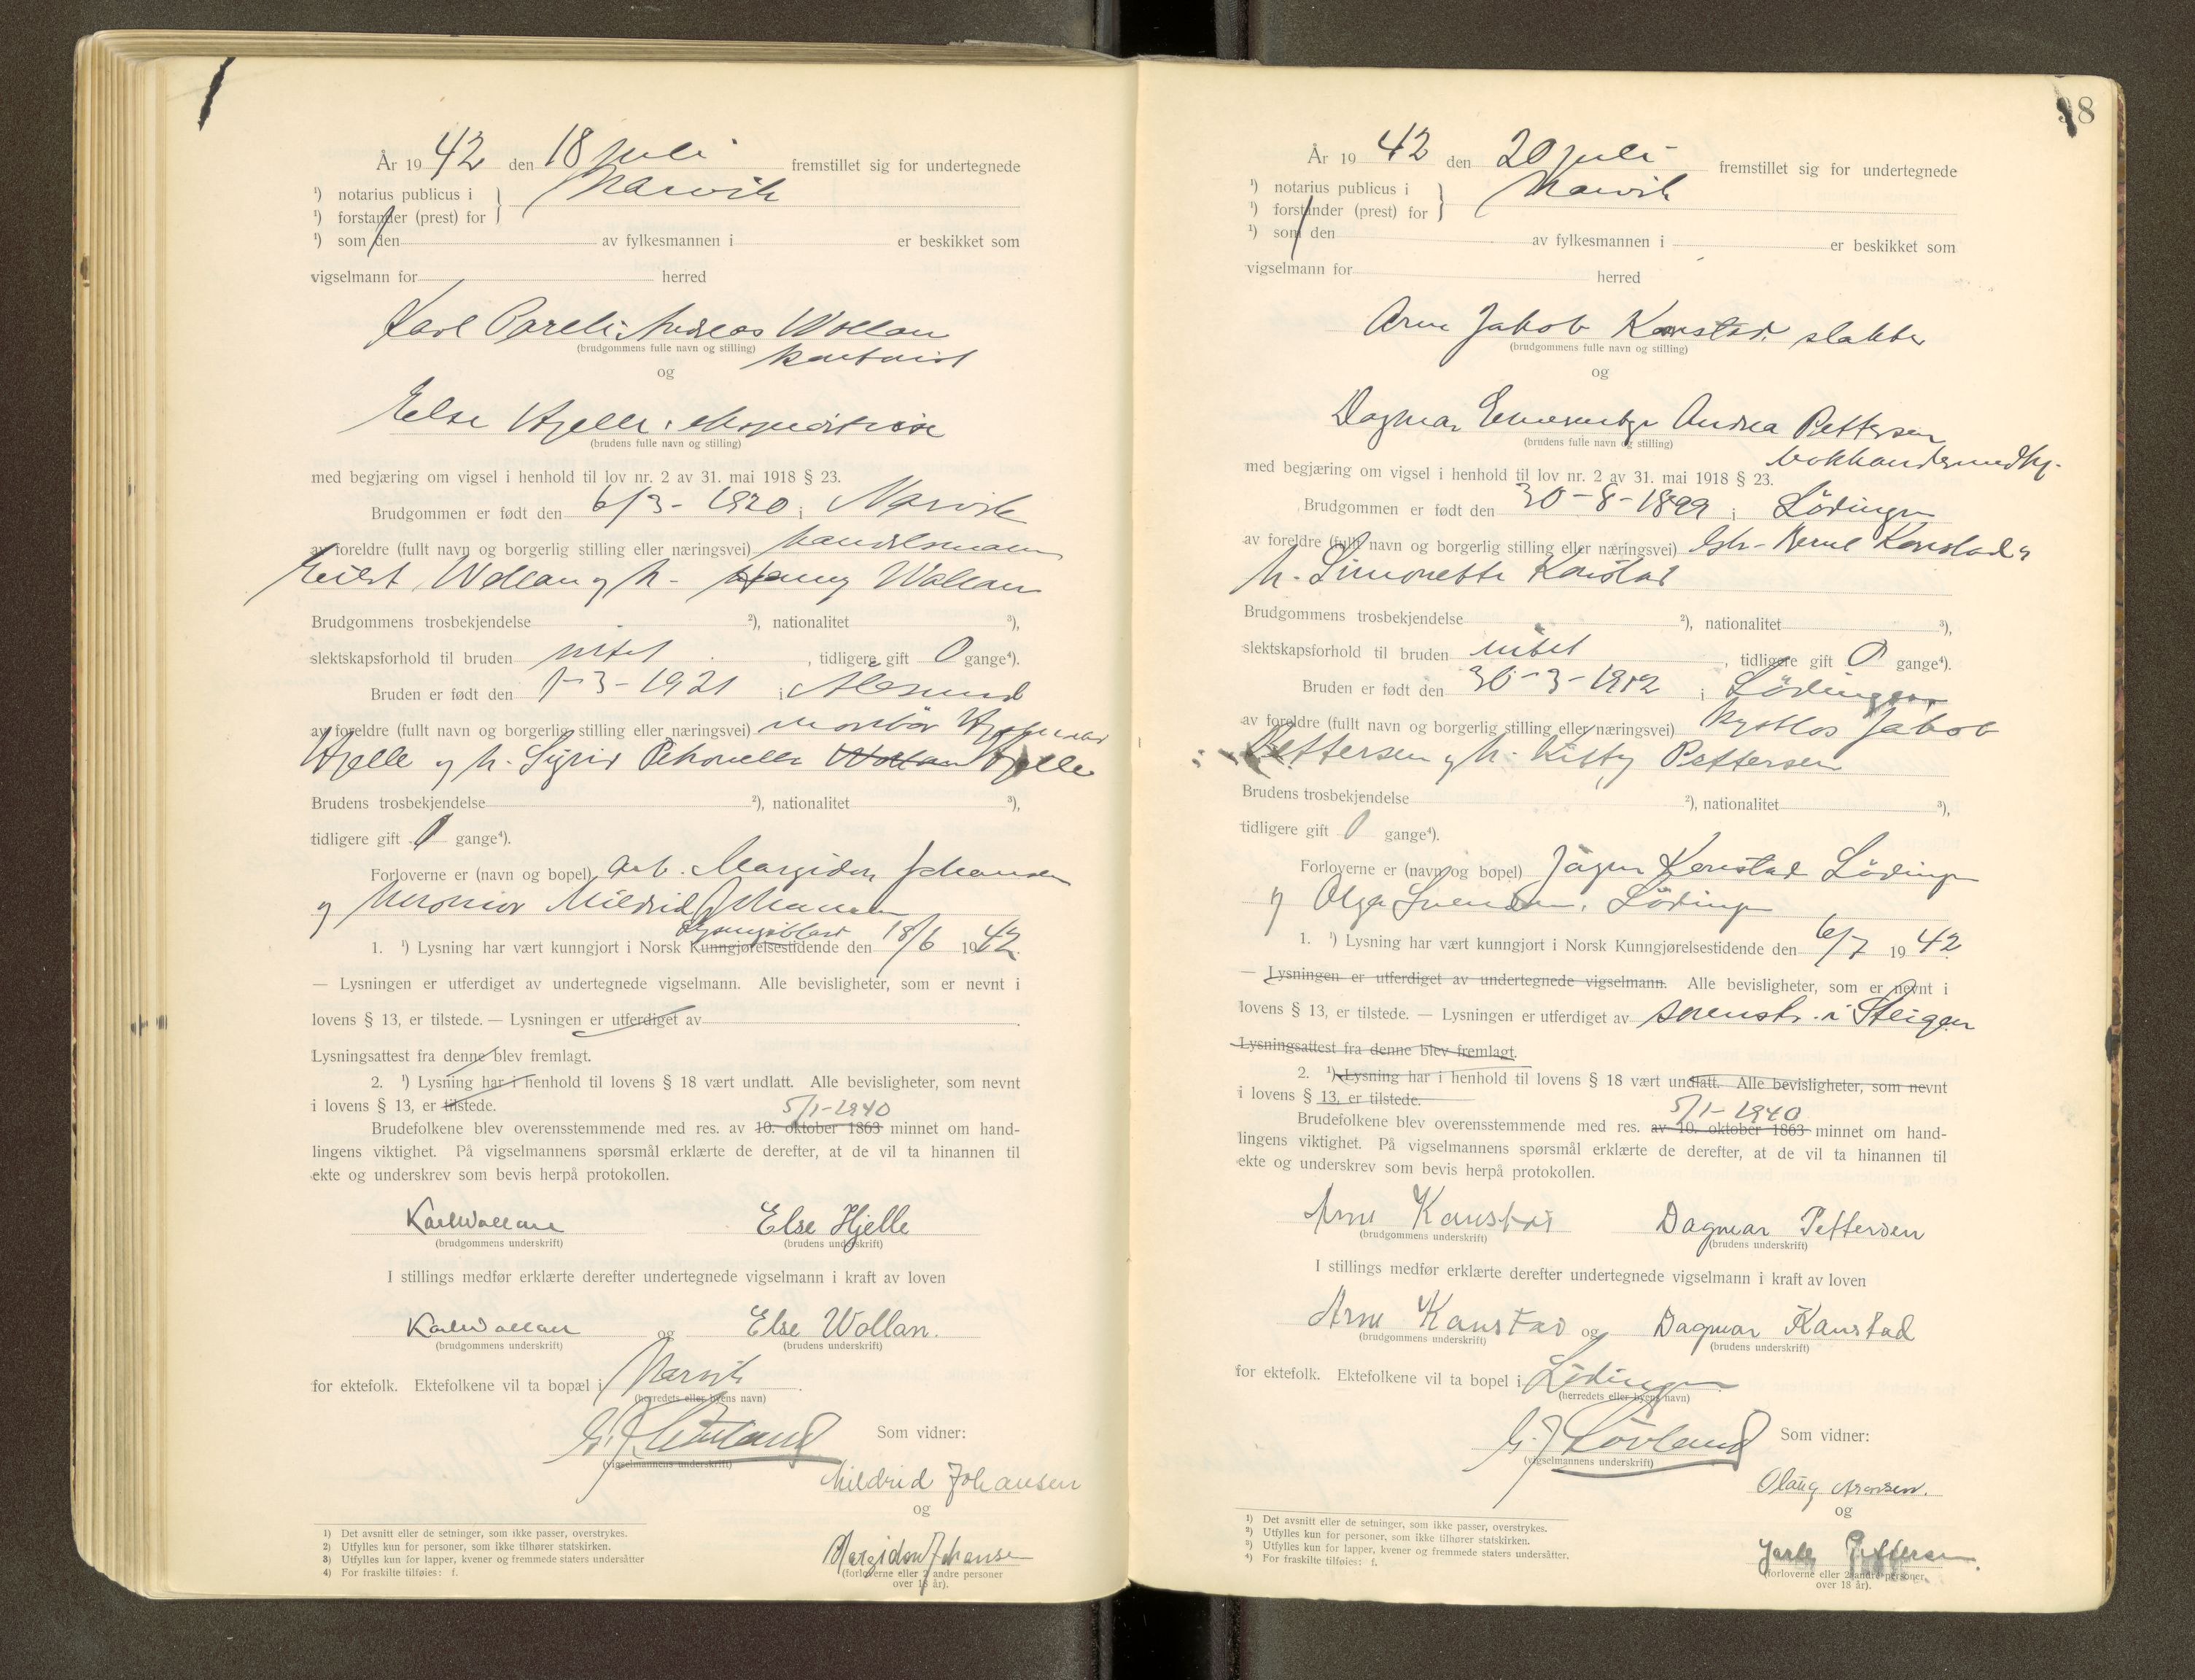 År 19 42 den 18 juli fremstillet sig for undertegnede
¹) notarius publicus i } Narvik
¹) forstander (prest) for
¹) som den av fylkesmannen i er beskikket som
vigselmann for herred
Karl Andreas Wollan
(brudgommens fulle navn og stilling) kontorist
og
Else Hjelle, ekspeditrise
(brudens fulle navn og stilling)
med begjæring om vigsel i henhold til lov nr. 2 av 31. mai 1918 § 23.
Brudgommen er født den 6/3 - 1920 i Narvik
av foreldre (fullt navn og borgerlig stilling eller næringsvei) handelsmann
Wollan og h. Wollan
Brudgommens trosbekjendelse ²), nationalitet ³),
slektskapsforhold til bruden intet , tidligere gift 0 gange⁴).
Bruden er født den 1-3-1921 i Ålesund
av foreldre (fullt navn og borgerlig stilling eller næringsvei) montør
Hjelle og h. Sigrid Petronella Wollan Hjelle
Brudens trosbekjendelse ²), nationalitet ³),
tidligere gift 0 gange⁴).
Forloverne er (navn og bopel) arb. Margido Johansen
og Mildrid Johansen
Lysningsblad
1. ¹) Lysning har vært kunngjort i Norsk Kunngjørelsestidende den 18/6 1942.
— Lysningen er utferdiget av undertegnede vigselmann. Alle bevisligheter, som er nevnt i
lovens § 13, er tilstede. — Lysningen er utferdiget av
Lysningsattest fra denne blev fremlagt.
2. ¹) Lysning har i henhold til lovens § 18 vært undlatt. Alle bevisligheter, som nevnt
i lovens § 13, er tilstede.
5/1-1940
Brudefolkene blev overensstemmende med res. av 10. oktober 1863 minnet om hand-
lingens viktighet. På vigselmannens spørsmål erklærte de derefter, at de vil ta hinannen til
ekte og underskrev som bevis herpå protokollen.
Karl Wollan Else Hjelle
(brudgommens underskrift) (brudens underskrift)
I stillings medfør erklærte derefter undertegnede vigselmann i kraft av loven
Karl Wollan og Else Wollan.
(brudgommens underskrift) (brudens underskrift)
for ektefolk. Ektefolkene vil ta bopæl i Narvik
(herredets eller byens navn)
G. J. Løvland Som vidner:
(vigselmannens underskrift)
Mildrid Johansen
og
Margido Johansen
(forloverne eller 2 andre personer
over 18 år).
1) Det avsnitt eller de setninger, som ikke passer, overstrykes.
2) Utfylles kun for personer, som ikke tilhører statskirken.
3) Utfylles kun for lapper, kvener og fremmede staters undersåtter
4) For fraskilte tilføies: f.
98
År 19 42 den 20 juli fremstillet sig for undertegnede
¹) notarius publicus i } Narvik
¹) forstander (prest) for
¹) som den av fylkesmannen i er beskikket som
vigselmann for herred
Arne Jakob Kanstad slakter
(brudgommens fulle navn og stilling)
og
Dagmar Andrea Pettersen
(brudens fulle navn og stilling)
med begjæring om vigsel i henhold til lov nr. 2 av 31. mai 1918 § 23.
Brudgommen er født den 30-8-1899 i Lödingen
av foreldre (fullt navn og borgerlig stilling eller næringsvei) Kanstad og
h. Simonette Kanstad
Brudgommens trosbekjendelse ²), nationalitet ³),
slektskapsforhold til bruden intet , tidligere gift 0 gange⁴).
Bruden er født den 30-3-1912 i Lödingen
av foreldre (fullt navn og borgerlig stilling eller næringsvei) Jakob
Pettersen og h. Kitty Pettersen
Brudens trosbekjendelse ²), nationalitet ³),
tidligere gift 0 gange⁴).
Forloverne er (navn og bopel) Kanstad Lödingen
og Olga Svendsen, Lödingen
1. ¹) Lysning har vært kunngjort i Norsk Kunngjørelsestidende den 6/7 1942
— Lysningen er utferdiget av undertegnede vigselmann. Alle bevisligheter, som er nevnt i
lovens § 13, er tilstede. — Lysningen er utferdiget av sorenskr. i Steigen
Lysningsattest fra denne blev fremlagt.
2. ¹) Lysning har i henhold til lovens § 18 vært undlatt. Alle bevisligheter, som nevnt
i lovens § 13, er tilstede.
5/1-1940
Brudefolkene blev overensstemmende med res. av 10. oktober 1863 minnet om hand-
lingens viktighet. På vigselmannens spørsmål erklærte de derefter, at de vil ta hinannen til
ekte og underskrev som bevis herpå protokollen.
Arne Kanstad Dagmar Pettersen
(brudgommens underskrift) (brudens underskrift)
I stillings medfør erklærte derefter undertegnede vigselmann i kraft av loven
Arne Kanstad og Dagmar Kanstad
(brudgommens underskrift) (brudens underskrift)
for ektefolk. Ektefolkene vil ta bopel i Lödingen
(herredets eller byens navn)
G. J. Lövland Som vidner:
(vigselmannens underskrift)
Olaug Aronsen.
og
Jarle Pettersen.
(forloverne eller 2 andre personer
over 18 år).
¹) Det avsnitt eller de setninger, som ikke passer, overstrykes.
²) Utfylles kun for personer, som ikke tilhører statskirken.
³) Utfylles kun for lapper, kvener og fremmede staters undersåtter.
⁴) For fraskilte tilføies: f.